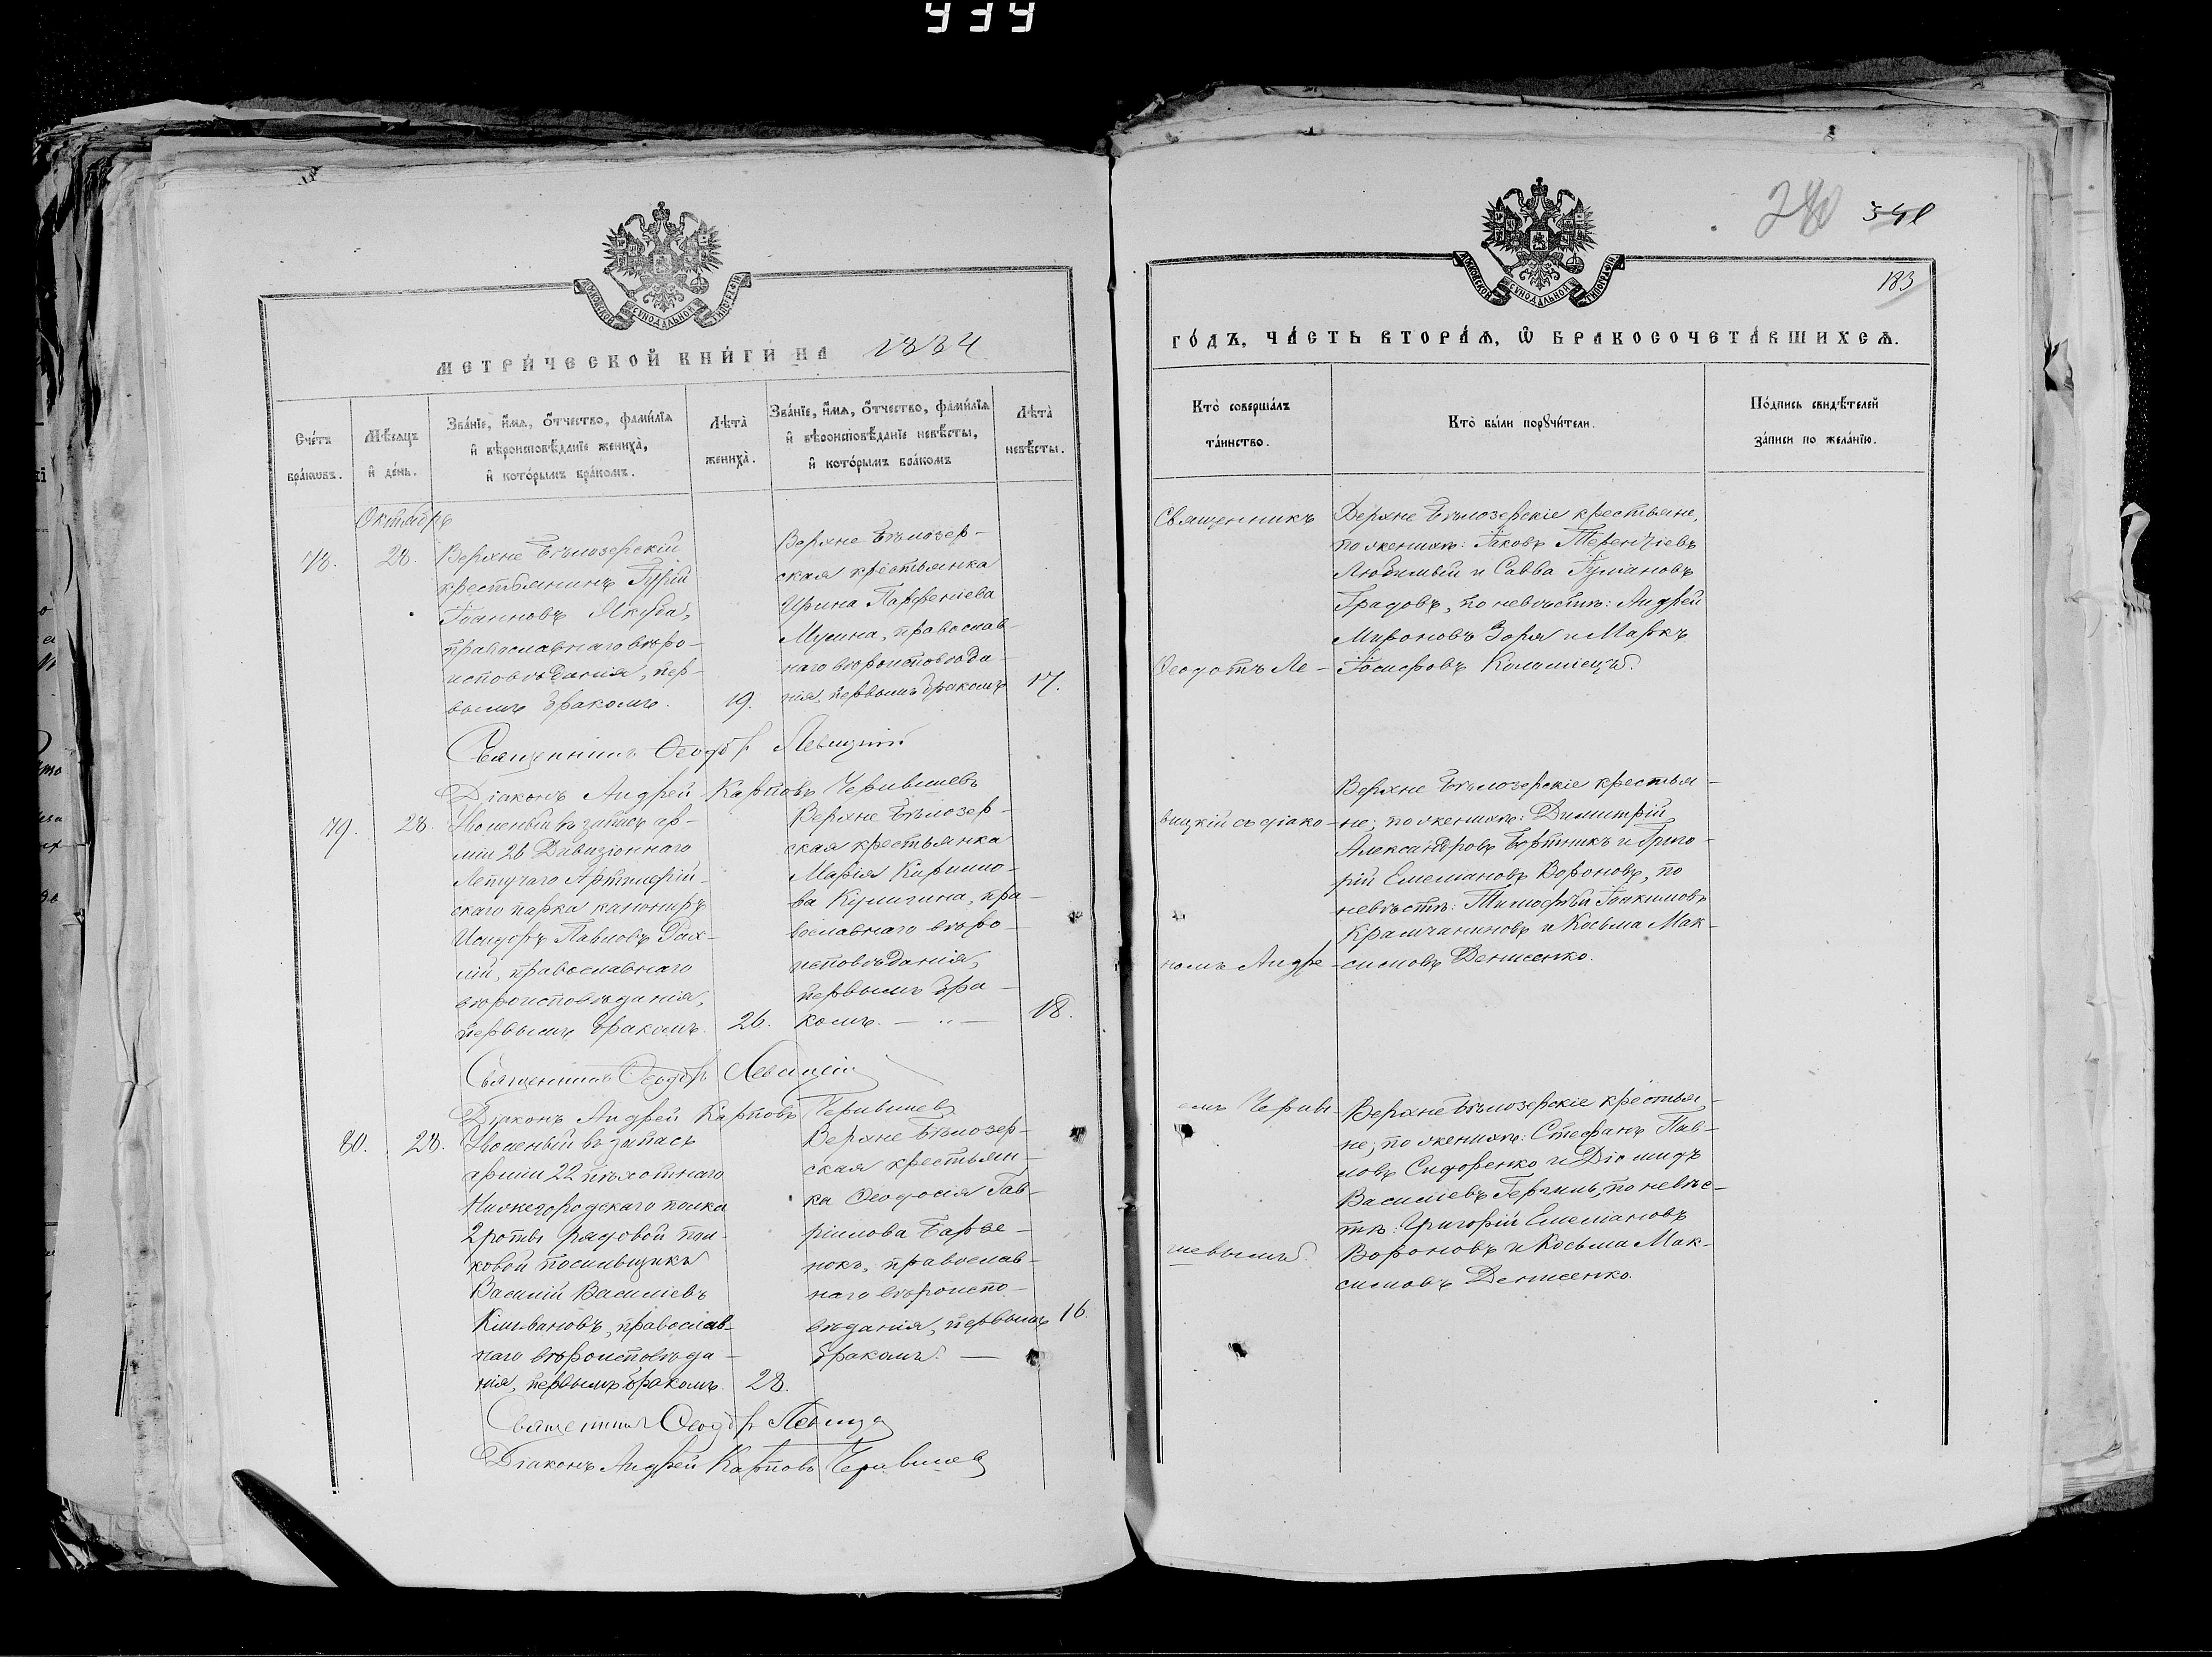 939
МОСКОВСКОЙ СѴНОДАЛЬНОЙ ТИПОГРАФІИ
МЕТРИ́ЧЕСКОЙ КНИ́ГИ НА 1884
Сче́тъ
бра́ковъ.
Мѣ́сѧцъ
и҆ де́нь.
Зва́нїе, и҆́мѧ, ѻ҆́тчество, фами́лїѧ
и҆ вѣроисповѣ́данїе жениха̀,
и҆ кото́рымъ бра́комъ.
Лѣ́та
жениха̀.
Зва́нїе, и҆́мѧ, ѻ҆́тчество, фами́лїѧ
и҆ вѣроисповѣ́данїе невѣ́сты,
и҆ кото́рымъ бра́комъ
Лѣ́та
невѣ́сты.
Октябрь
78.
28.
Верхне Бѣлозерскій
крестьянинъ Гурій
Іоанновъ Якуба,
православнаго вѣро-
исповѣданія, пер-
вымъ бракомъ.
19.
Верхне Бѣлозер-
ская крестьянка
Ирина Парфеніева
православ-
наго вѣроисповѣда-
нія, первымъ бракомъ
17.
Священникъ Ѳеодотъ Левицкій
Діаконъ Андрей Карповъ Черивишевъ
79.
28.
въ запасъ ар-
міи 26 Дивизіоннаго
Летучаго Артилерій-
скаго парка канониръ
Исидоръ Павловъ
православнаго
вѣроисповѣданія,
первымъ бракомъ.
26.
Верхне Бѣлозер-
ская крестьянка
Марія Кирилло-
ва пра-
вославнаго вѣро-
исповѣданія,
первымъ бра-
комъ. — „ —
18.
Священникъ Ѳеодотъ Левицкій
Діаконъ Андрей Карповъ Черивишевъ
80.
28.
въ запасъ
арміи 22 пѣхотнаго
Нижегородскаго полка
2 роты рядовой пол-
ковой носильщикъ
Василій Василіевъ
православ-
наго вѣроисповѣда-
нія, первымъ бракомъ.
28.
Верхне Бѣлозер-
ская крестьян-
ка Ѳеодосія Гав-
ріилова
православ-
наго вѣроиспо-
вѣданія, первымъ
бракомъ. —
16.
Священникъ Ѳеодотъ Левицкій
Діаконъ Андрей Карповъ Черивишевъ
280
341
183
МОСКОВСКОЙ СѴНОДАЛЬНОЙ ТИПОГРАФІИ
ГО́ДЪ, ЧА́СТЬ ВТОРА́Ѧ, Ѽ БРАКОСОЧЕТА́ВШИХСѦ.
Кто̀ соверша́лъ
та́инство.
Кто̀ бы́ли порꙋчи́тели.
По́дпись свидѣ́телей
за́писи по жела́нїю.
Священникъ
Ѳеодотъ Ле-
вицкій съ діако-
номъ Андре-
емъ Череви-
шевымъ.
Верхне Бѣлозерскіе крестьяне,
по женихѣ: Іаковъ Терентіевъ
Любимый и Савва
Градовъ, по невѣстѣ: Андрей
Мироновъ Зоря и Маркъ
Іосифовъ Коломіецъ.
Верхне Бѣлозерскіе крестья-
не; по женихѣ: Димитрій
Александровъ Бортникъ и Григо-
рій Емеліановъ Вороновъ, по
невѣстѣ: Тимофей Іоакимовъ
Крамчаниновъ и Косьма Мак-
симовъ Денисенко.
Верхне Бѣлозерскіе крестья-
не; по женихѣ: Стефанъ Пав-
ловъ Сидоренко и Діомидъ
Василіевъ по невѣс-
тѣ: Григорій Емеліановъ
Вороновъ и Косьма Мак-
симовъ Денисенко.